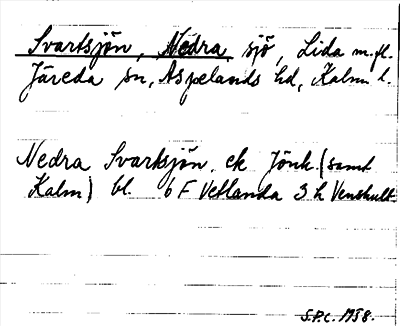 Svartsjön, Nedra sjö, Lida m.fl.
Järeda sn, Aspelands hd, Kalm l.
Nedra Svartsjön. ek Jönk. (samt
Kalm) bl. 6 F Vetlanda 3 h Venshult
S.P.C. 1958.